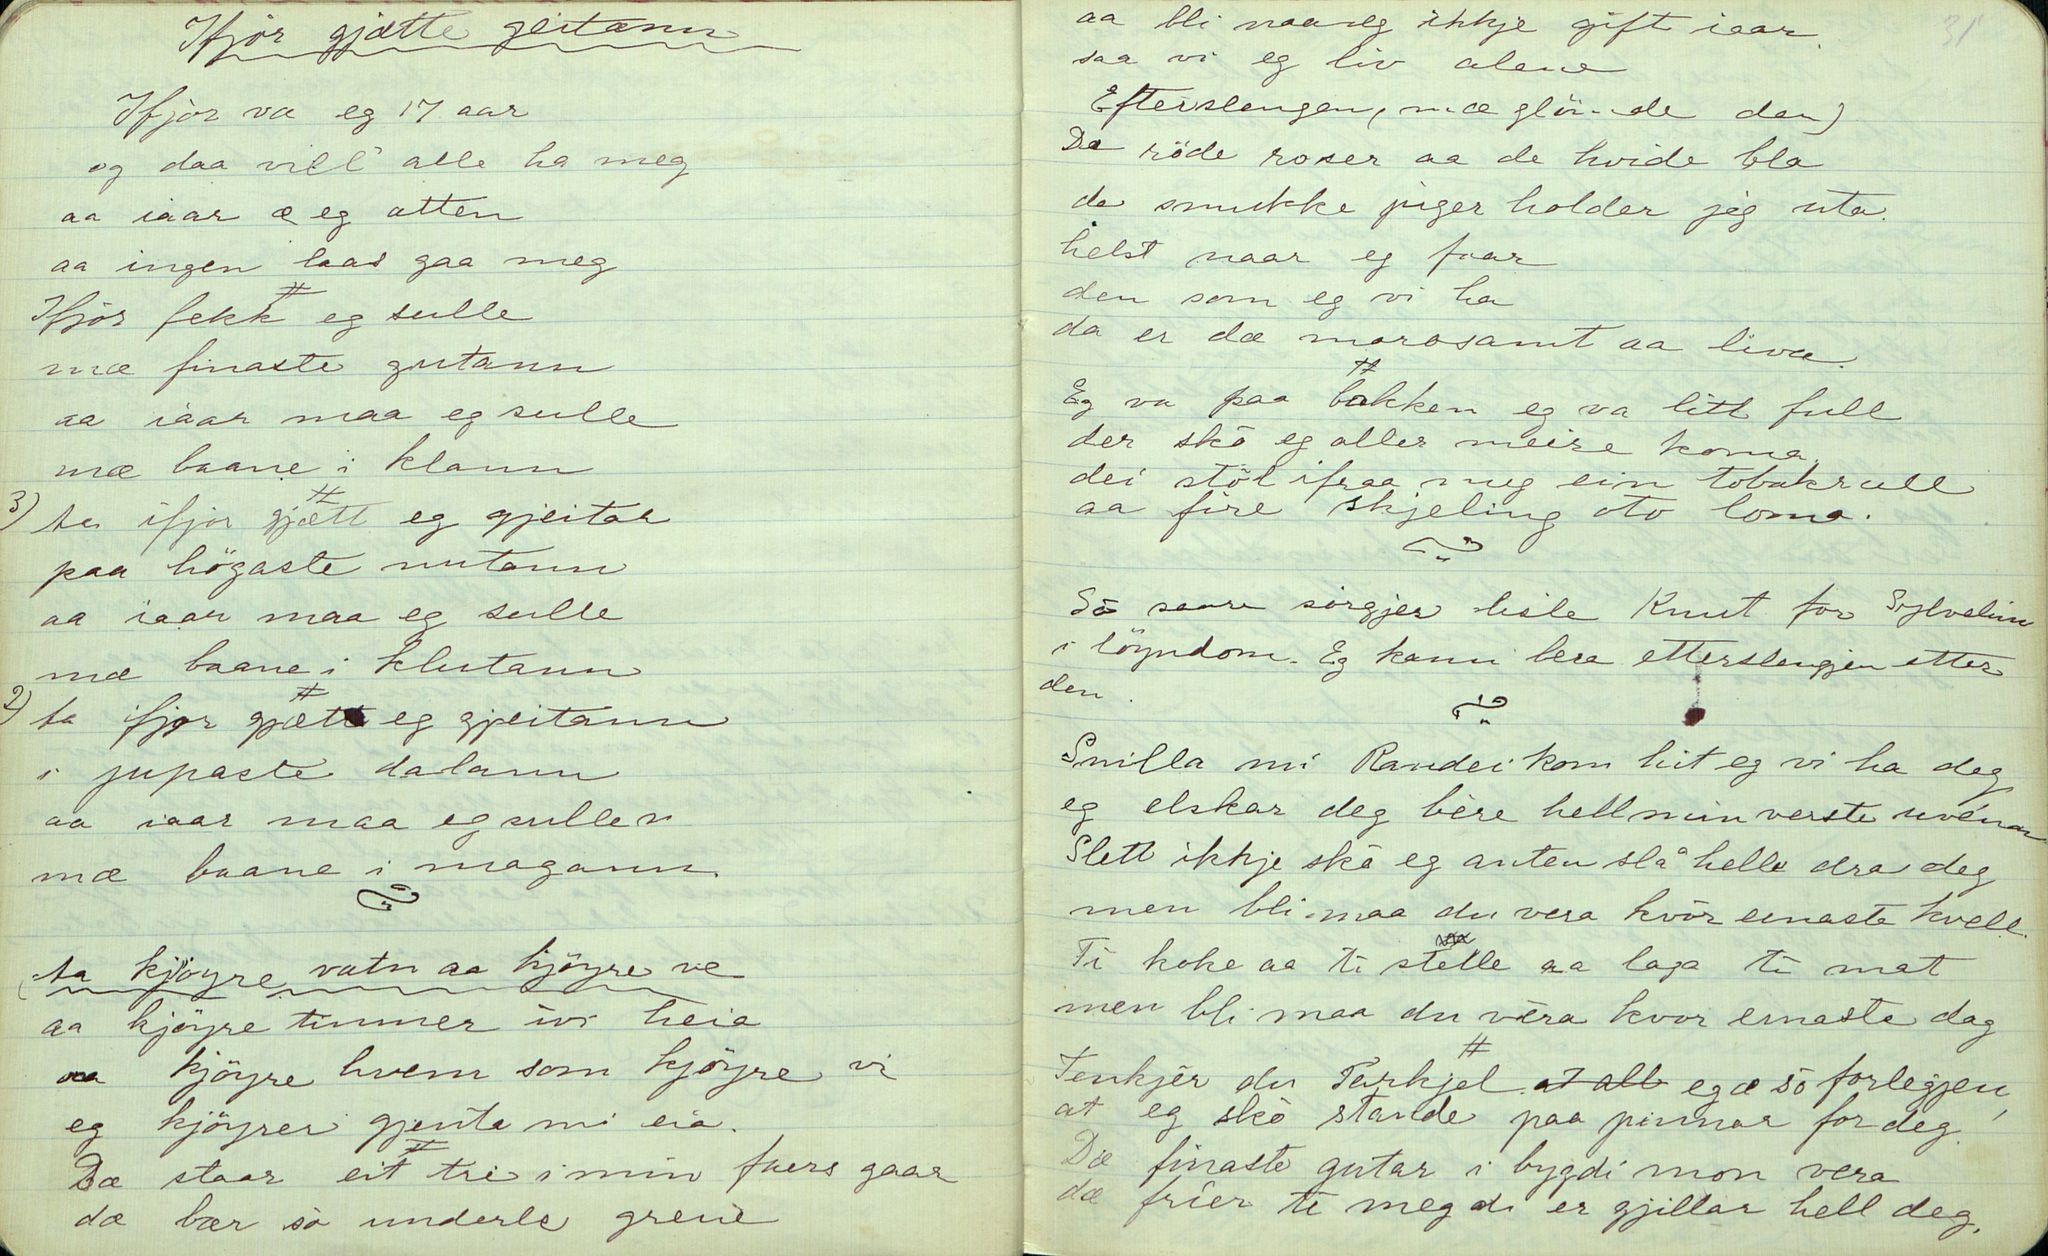 Ifjor gjætte geitann
Ifjor va eg 17 aar
og daa vill alle ha meg
aa iaar æ eg atten
aa ingen laas gaa meg
#
Ifjor fekk eg sulle
mæ finaste gutann
aa iaar maa eg sulle
mæ baane i klann
#
3) ta ifjor gjætt eg gjeitar
paa högaste nutann
aa iaar maa eg sulle
mæ baane i klutann
#
2) ta ifjor gjætt eg gjeitann
i jupaste dalann
aa iaar maa eg sulle
mæ baane i magann.
ta kjöyre vatn aa kjöyre ve
aa kjöyre timmer ivi heia
aa kjöyre hvem som kjöyre vi
eg kjöyrer gjenta mi eia.
#
Dæ staar eit tre i min faers gaar
dæ bær so underle greine
31
aa bli naa eg ikkje gift iaar
saa vi eg liv alene
Efterslengen, mæ glömde den)
De röde roser aa de hvide bla
de smukke piger holder jeg uta.
helst naar eg faar
den som eg vi ha
da er dæ morosamt aa liva.
#
Eg va paa bakken eg va litt full
der skó eg aller meire koma.
dei stöl ifraa meg ein tobakrull
aa fire skjeling oto loma.
Só saare sörgjer lisle Knut for Sylvelin
i löyndom. Eg kann bera etterslengjen etter
den.
Snilla mi Randei kom hit eg vi ha deg
eg elskar deg bére hell min verste uvénn
Slett ikkje skó eg anten slå helle dra deg
men bli maa du vera kvór einaste kvell.
Ti koke aa ti stelle aa laga ti mat
men bli maa du véra kvor einaste dag
#
Tenkjér du Tarkjel at all eg æ só forlegjen,
at eg skó stande paa pinnar for deg.
Dæ finaste gutar i bygdi mon vera
dæ friér té meg di er gjillar hell deg.